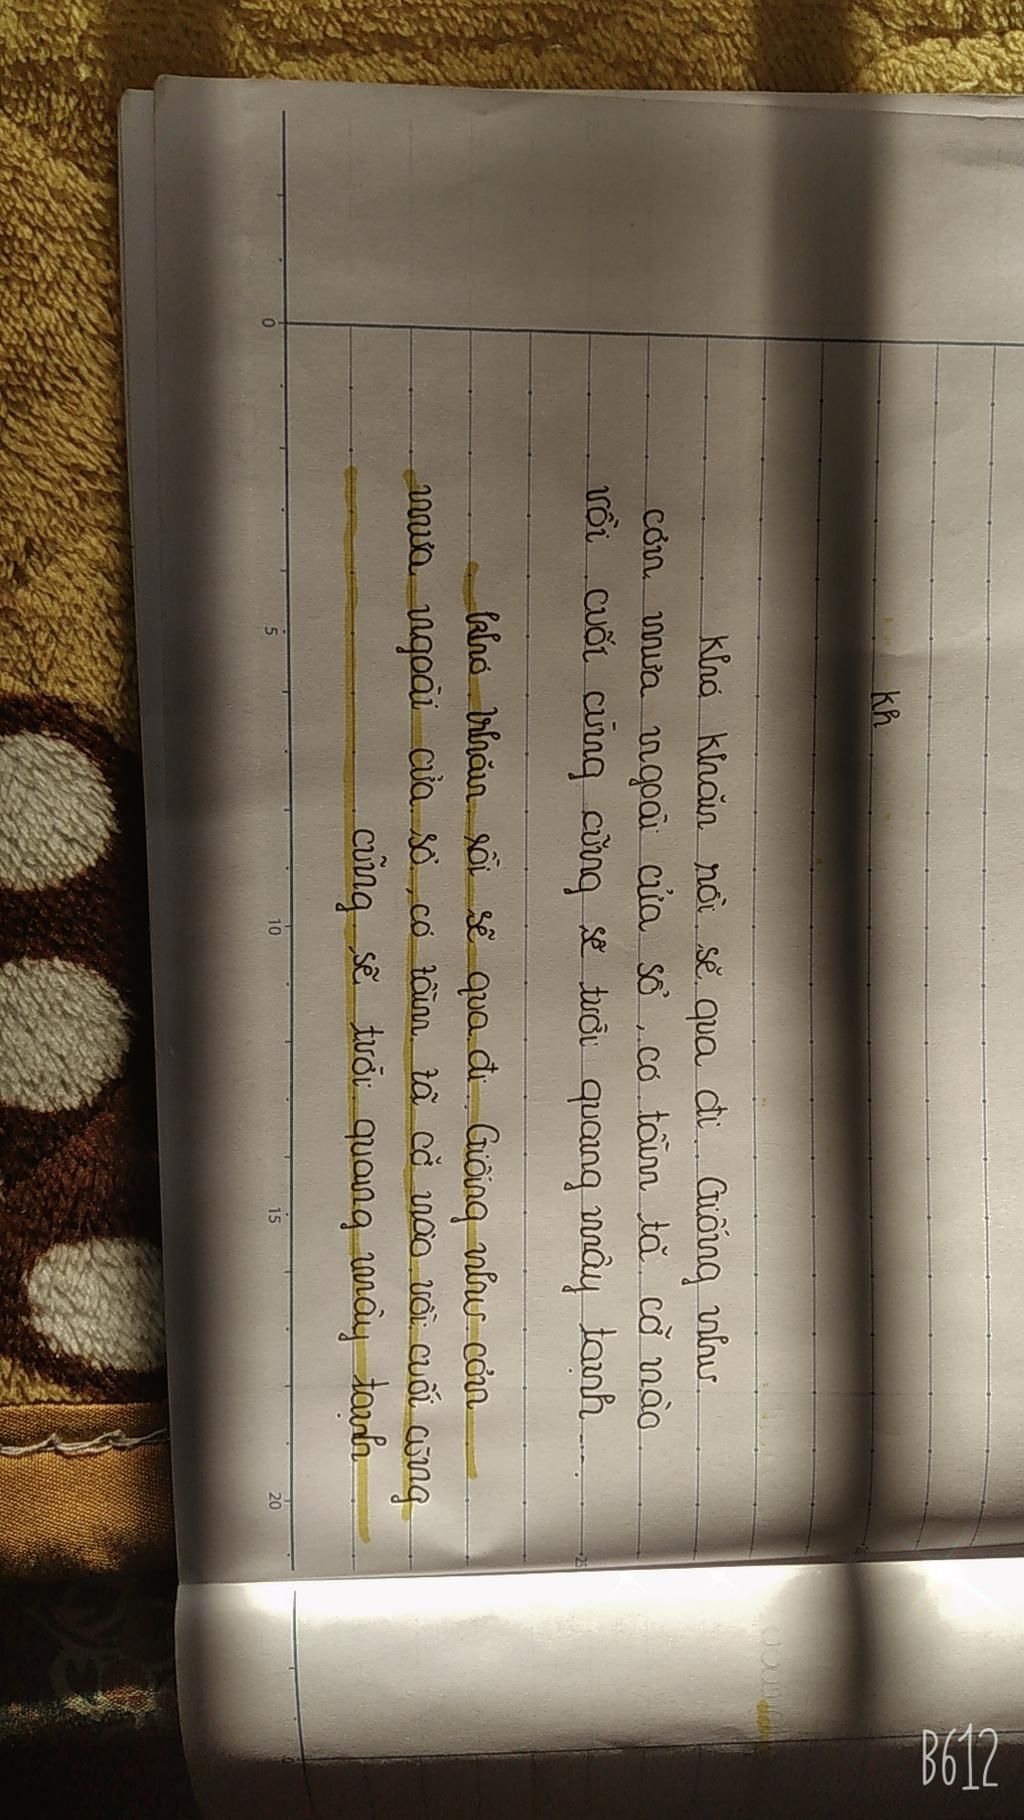 kh
Khó khăn rồi sẽ qua đi. Giống như
cơn mưa ngoài cửa sổ, có tầm tã cỡ nào
rồi cuối cùng cũng sẽ trời quang mây tạnh....
25
khó khăn rồi sẽ qua đi. Giống như cơn
mưa ngoài cửa sổ, có tầm tã cỡ nào rồi cuối cùng
cũng sẽ trời quang mây tạnh
0 5 10 15 20
B612